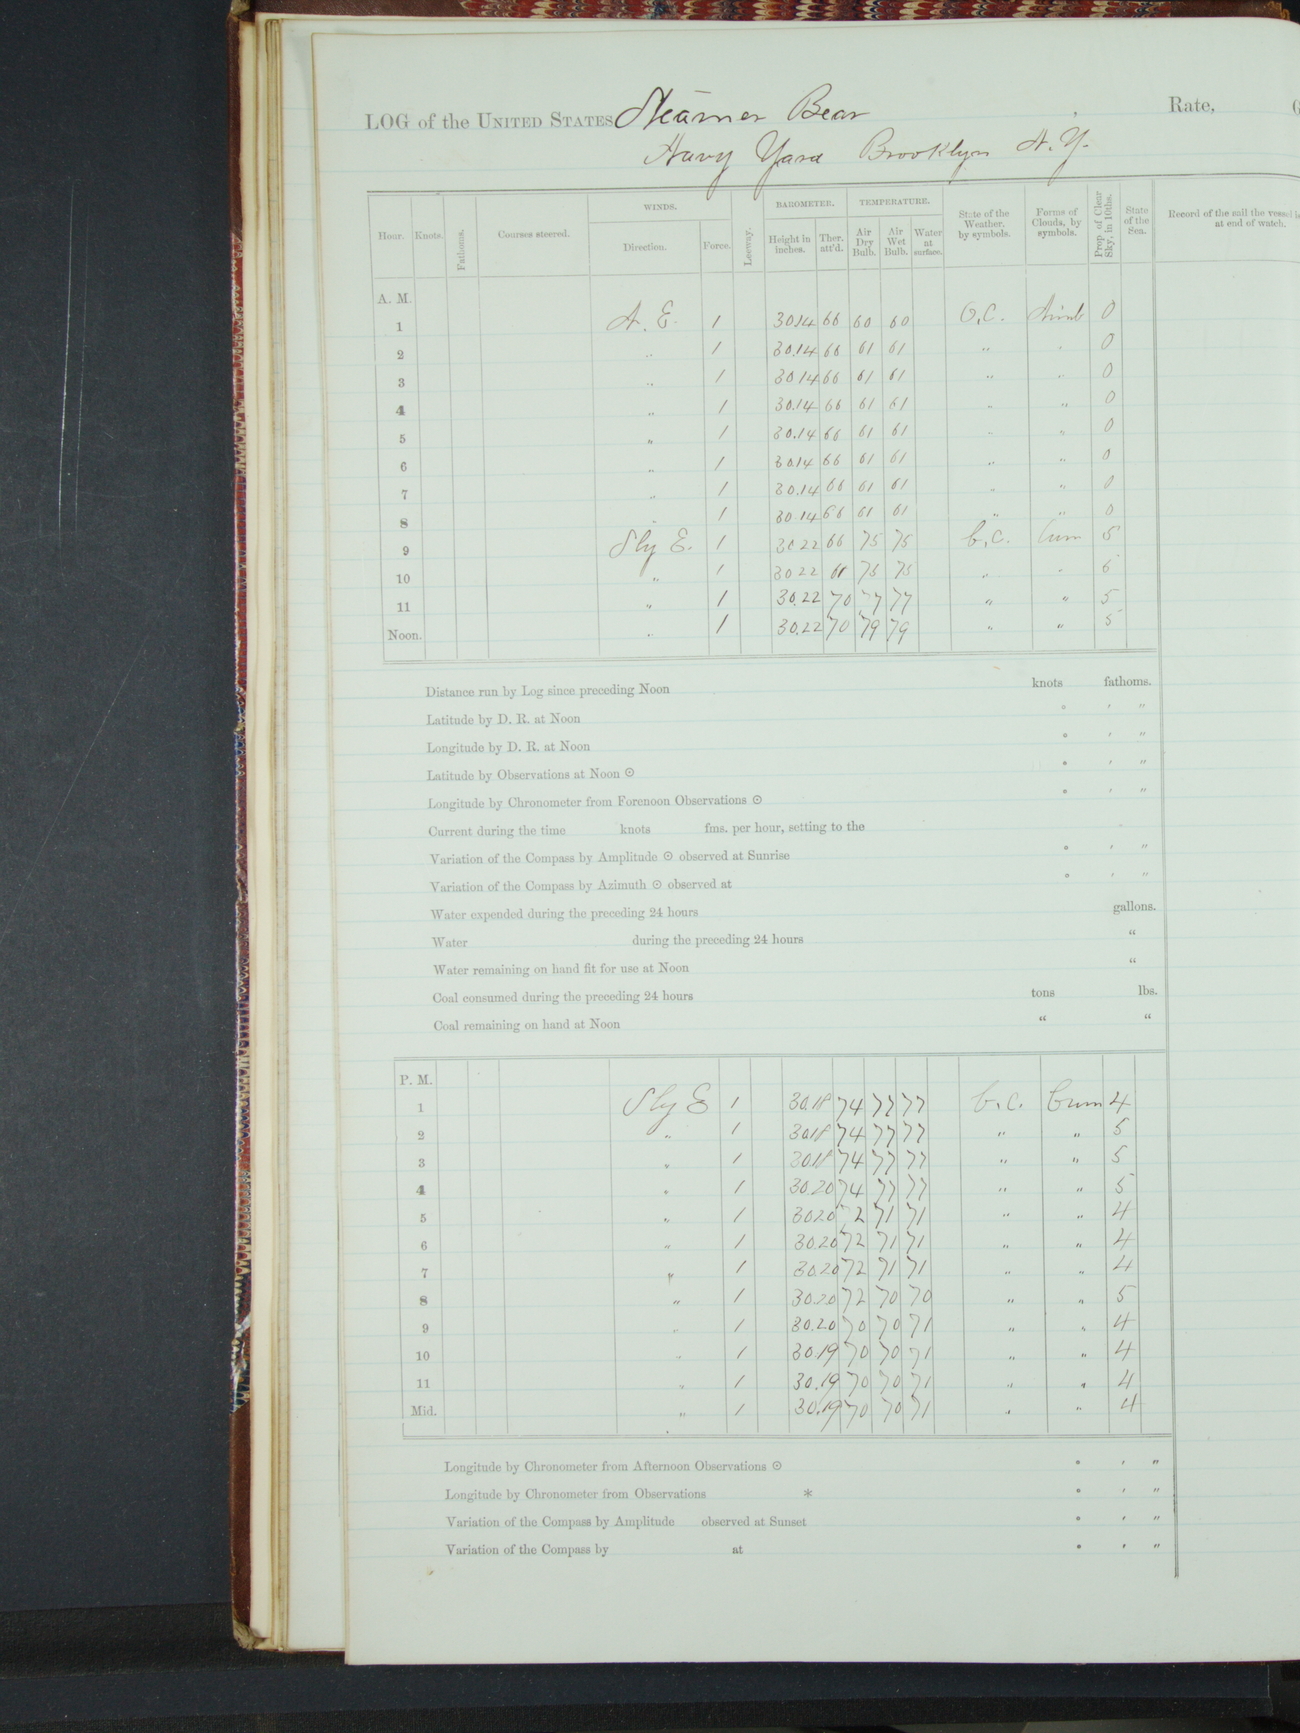 LOG of the UNITED STATES Steamer Bear Rate,
Navy Yard Brooklyn N.Y.
Hour. Knots. Fathoms. Courses steered. WINDS. Direction. Force. Leeway. BAROMETER. Height in inches. Ther. att'd. TEMPERATURE. Air Dry Bulb. Air Wet Bulb. Water at surface. State of the Weather, by symbols. Forms of Clouds, by symbols. Prop. of Clear Sky, in 10ths. State of the Sea. Record of the sail the vessel is at end of watch.
A. M.
1 N. E. 1 30.14 66 60 60 O.C. Nimb 0
2 " 1 30.14 66 61 61 " " 0
3 " 1 30.14 66 61 61 " " 0
4 " 1 30.14 66 61 61 " " 0
5 " 1 30.14 66 61 61 " " 0
6 " 1 30.14 66 61 61 " " 0
7 " 1 30.14 66 61 61 " " 0
8 " 1 30.14 66 61 61 " " 0
9 Sly E. 1 30.22 66 75 75 b.c. Cum 5
10 " 1 30.22 75 75 " "
11 " 1 30.22 70 77 77 " " 5
Noon. " 1 30.22 70 79 79 " " 5
Distance run by Log since preceding Noon knots fathoms.
Latitude by D. R. at Noon ° ′ ″
Longitude by D. R. at Noon ° ′ ″
Latitude by Observations at Noon ⊙ ° ′ ″
Longitude by Chronometer from Forenoon Observations ⊙ ° ′ ″
Current during the time knots fms. per hour, setting to the
Variation of the Compass by Amplitude ⊙ observed at Sunrise ° ′ ″
Variation of the Compass by Azimuth ⊙ observed at ° ′ ″
Water expended during the preceding 24 hours gallons.
Water during the preceding 24 hours “
Water remaining on hand fit for use at Noon “
Coal consumed during the preceding 24 hours tons lbs.
Coal remaining on hand at Noon “ “
P. M.
1 Sly E 1 30.18 74 77 77 b.c. Cum 4
2 " 1 30.18 74 77 77 " " 5
3 " 1 30.18 74 77 77 " " 5
4 " 1 30.20 74 77 77 " " 5
5 " 1 30.20 72 71 71 " " 4
6 " 1 30.20 72 71 71 " " 4
7 " 1 30.20 72 71 71 " " 4
8 " 1 30.20 72 70 70 " " 5
9 " 1 30.20 70 70 71 " " 4
10 " 1 30.19 70 70 71 " " 4
11 " 1 30.19 70 70 71 " " 4
Mid. " 1 30.19 70 70 71 " " 4
Longitude by Chronometer from Afternoon Observations ⊙ ° ′ ″
Longitude by Chronometer from Observations * ° ′ ″
Variation of the Compass by Amplitude observed at Sunset ° ′ ″
Variation of the Compass by at ° ′ ″